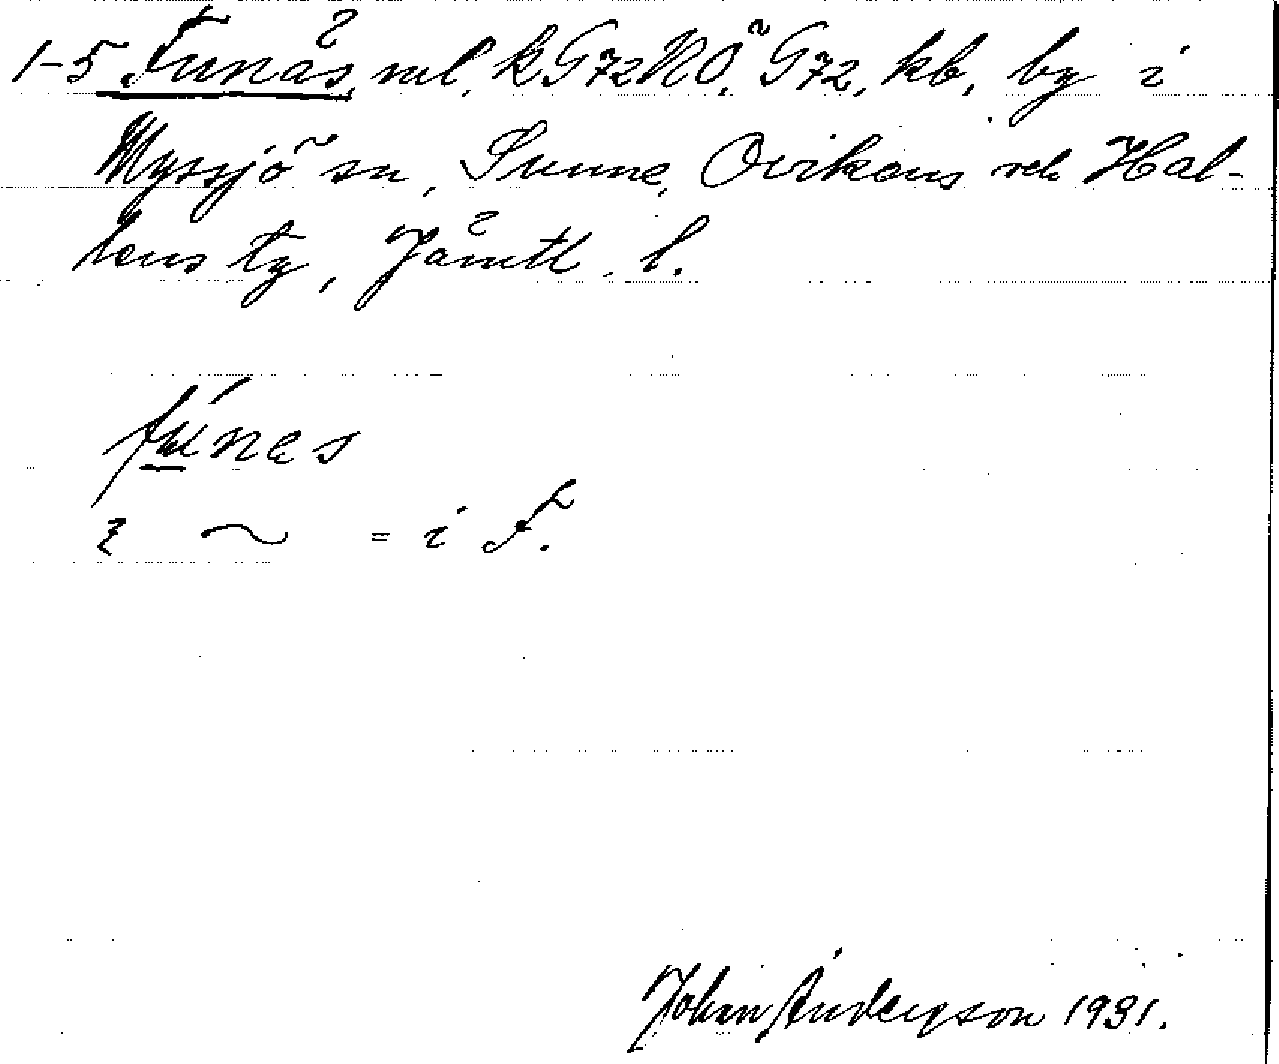 1-5 Funås, ml. k G72NÖ, G72, kb, by i
Myssjö sn, Sunne, Ovikens och Hal-
lens tg, Jämtl. l.
fúnes
ɪ ~ = i F.
John Andersson 1931.